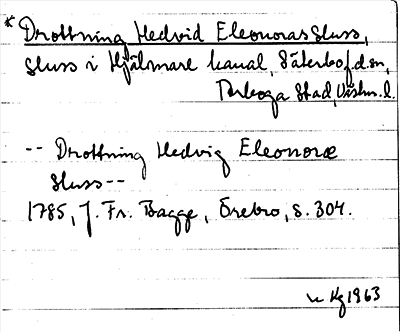 * Drottning Hedvid Eleonoras Sluss,
sluss i Hjälmare kanal, Säterbo f.d. sn,
Arboga Stad, Västm. l.
-- Drottning Hedvig Eleonoræ
Sluss--
1785, J. Fr. Bagge, Örebro, s. 304.
Kg 1963